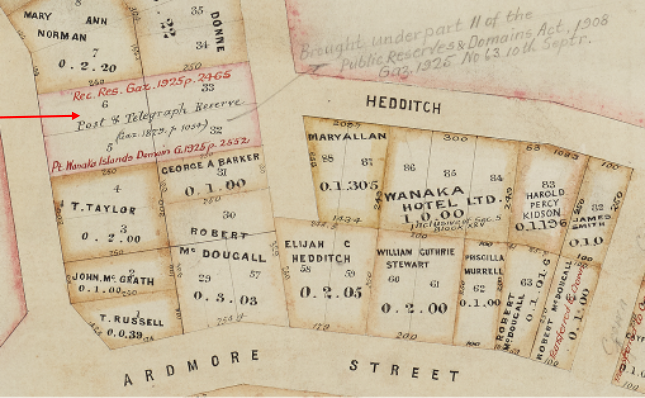 MARY ANN
NORMAN
7
0.2.20
250
35
34
DONNE
250
Rec. Res. Gaz. 1925 p. 2465
6
33
Post & Telegraph Reserve
5
32
Pt. Wanaka Islands Domain G. 1925 p. 2552
Brought under part II of the
Public Reserves & Domains Act, 1908
Gaz. 1925 No 63 10th Septr.
HEDDITCH
4
T. TAYLOR
3
0.2.00
250
GEORGE A BARKER
31
0.1.00
250
30
ROBERT
McDOUGALL
29
57
0.3.03
2
JOHN. Mc GRATH
0.1.00
1
T. RUSSELL
0.0.39
MARY ALLAN
88
87
0.1.305
1434
300
86
85
84
WANAKA
HOTEL LTD.
1.0.00
Inclusive of Sec. 5
Block XXV
200
83
HAROLD
PERCY
KIDSON
0.1.196
100
82
JAMES
SMITH
0.1.0
ELIJAH C
HEDDITCH
58
59
0.2.05
179
WILLIAM GUTHRIE
STEWART
60
61
0.2.00
200
PRISCILLA
MURRELL
62
0.1.00
ROBERT
McDOUGALL
63
100
ROBERT McDOUGALL
0.1.00
100
ARDMORE STREET